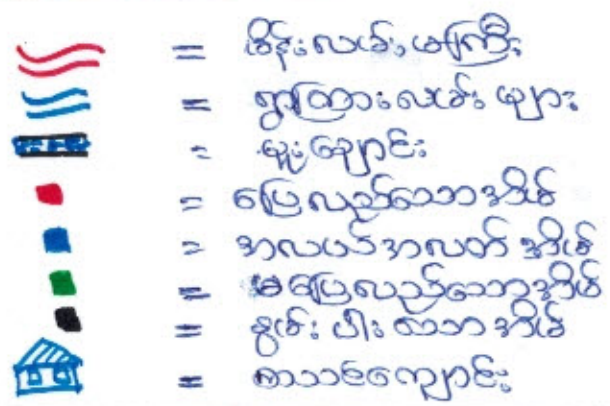 = မိန်းလမ်းမကြီး
= ရွာကြားလမ်းများ
= မူးချောင်း
= ပြေလည်သောအိမ်
= အလယ်အလတ်အိမ်
= မပြေလည်သောအိမ်
= နွမ်းပါးသောအိမ်
= စာသင်ကျောင်း